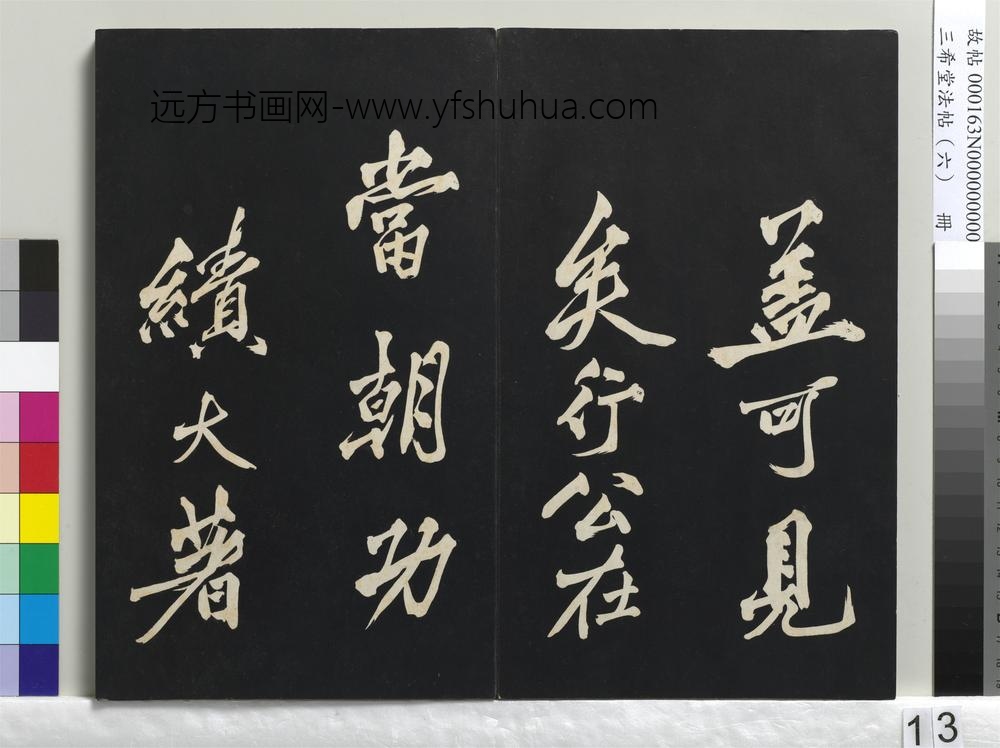 盖可見
矣行公在
當朝功
績大著
远方书画网-www.yfshuhua.com
故帖 000163N000000000
三希堂法帖（六） 册
13